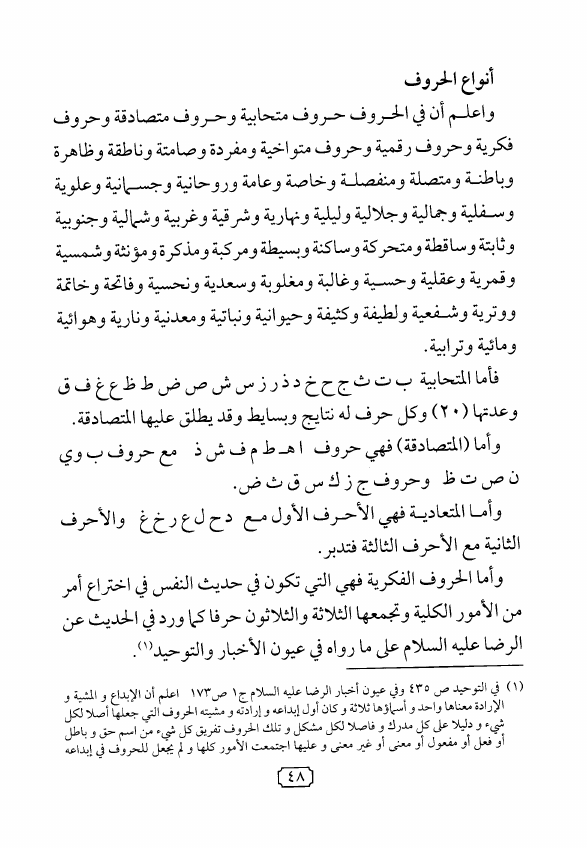 أنواع الحروف
واعلم أن في الحروف حروف متحابية وحروف متصادقة وحروف
فكرية وحروف رقمية وحروف متواخية ومفردة وصامتة وناطقة وظاهرة
وباطنة ومتصلة ومنفصلة وخاصة وعامة وروحانية وجسمانية وعلوية
وسفلية وجمالية وجلالية وليلية ونهارية وشرقية وغربية وشمالية وجنوبية
وثابتة وساقطة ومتحركة وساكنة وبسيطة ومركبة ومذكرة ومؤنثة وشمسية
وقمرية وعقلية وحسية وغالبة ومغلوبة وسعدية ونحسية وفاتحة وخاتمة
ووترية وشفعية ولطيفة وكثيفة وحيوانية ونباتية ومعدنية ونارية وهوائية
ومائية وترابية.
فأما المتحابية ب ت ث ج ح خ د ذ ر ز س ش ص ض ط ظ ع غ ف ق
وعدتها (٢٠) وكل حرف له نتايج وبسايط وقد يطلق عليها المتصادقة.
وأما (المتصادقة) فهي حروف ا هـ ط م ف ش ذ مع حروف ب و ي
ن ص ت ظ وحروف ج ز ك س ق ث ض.
وأما المتعادية فهي الأحرف الأول مع د ح ل ع ر خ غ والأحرف
الثانية مع الأحرف الثالثة فتدبر.
وأما الحروف الفكرية فهي التي تكون في حديث النفس في اختراع أمر
من الأمور الكلية وتجمعها الثلاثة والثلاثون حرفا كما ورد في الحديث عن
الرضا عليه السلام على ما رواه في عيون الأخبار والتوحيد(١).
(١) في التوحيد ص ٤٣٥ وفي عيون أخبار الرضا عليه السلام ج١ ص١٧٣ اعلم أن الإبداع و المشية و
الإرادة معناها واحد و أسماؤها ثلاثة و كان أول إبداعه و إرادته و مشيته الحروف التي جعلها أصلا لكل
شيء و دليلا على كل مدرك و فاصلا لكل مشكل و تلك الحروف تفريق كل شيء من اسم حق و باطل
أو فعل أو مفعول أو معنى أو غير معنى و عليها اجتمعت الأمور كلها و لم يجعل للحروف في إبداعه
٤٨